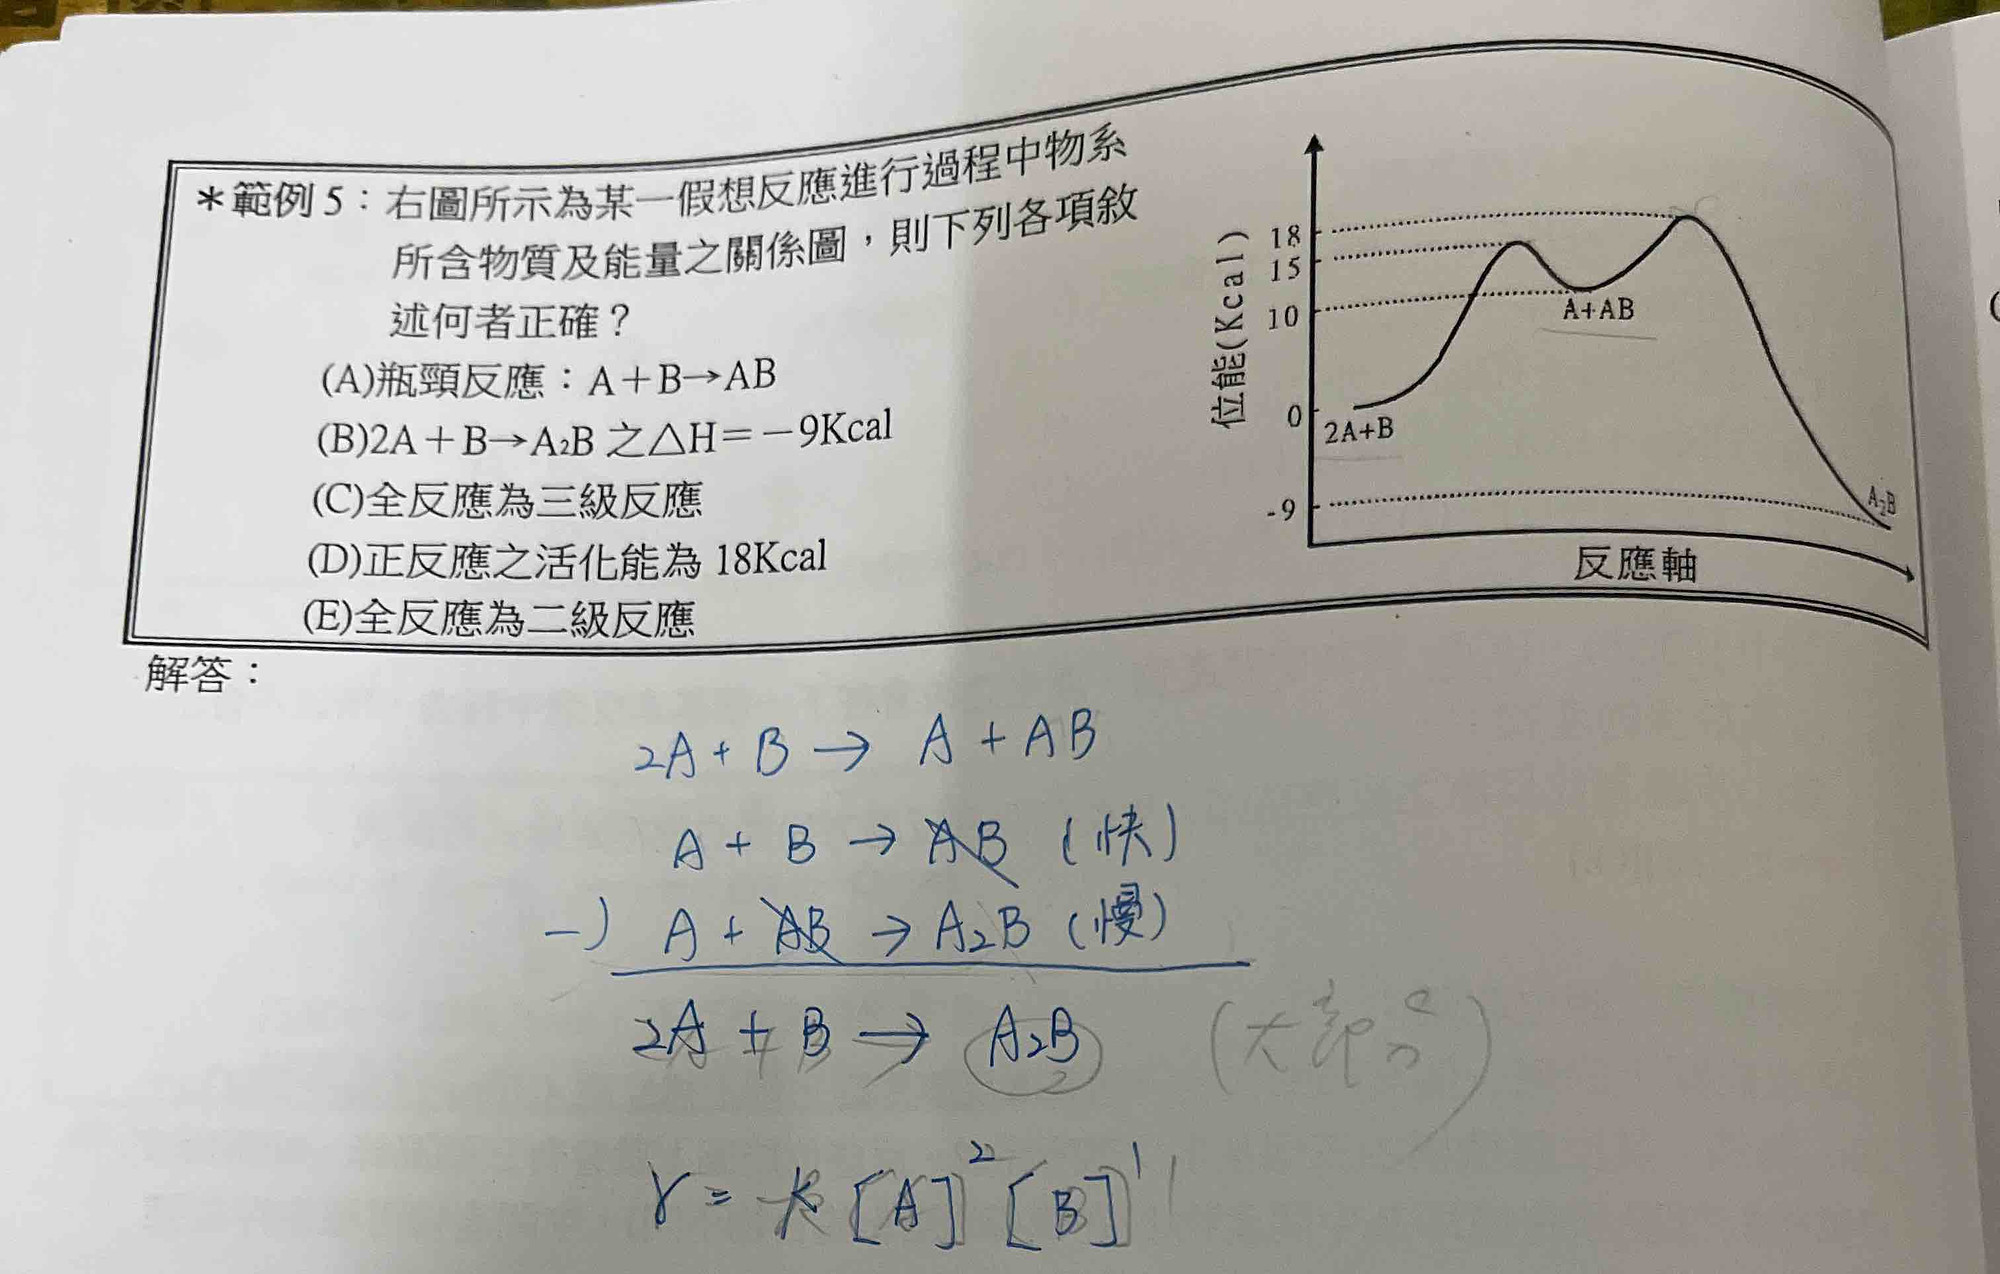 ＊範例5：右圖所示為某一假想反應進行過程中物系
所含物質及能量之關係圖，則下列各項敘
述何者正確？
(A)瓶頸反應：A＋B→AB
(B)2A＋B→A₂B 之△H＝－9Kcal
(C)全反應為三級反應
(D)正反應之活化能為 18Kcal
(E)全反應為二級反應
位能(Kcal)
18
15
10
0
-9
A+AB
2A+B
A₂B
反應軸
解答：
2A + B → A + AB
A + B → AB (快)
—) A + AB → A₂B (慢)
2A + B → A₂B (大部分)
r = k [A]² [B]¹